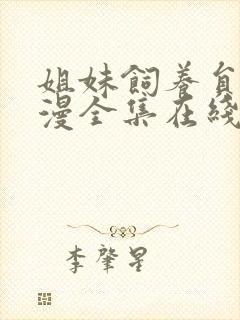 姐妹飼養自
漫全集在綫
李肇星